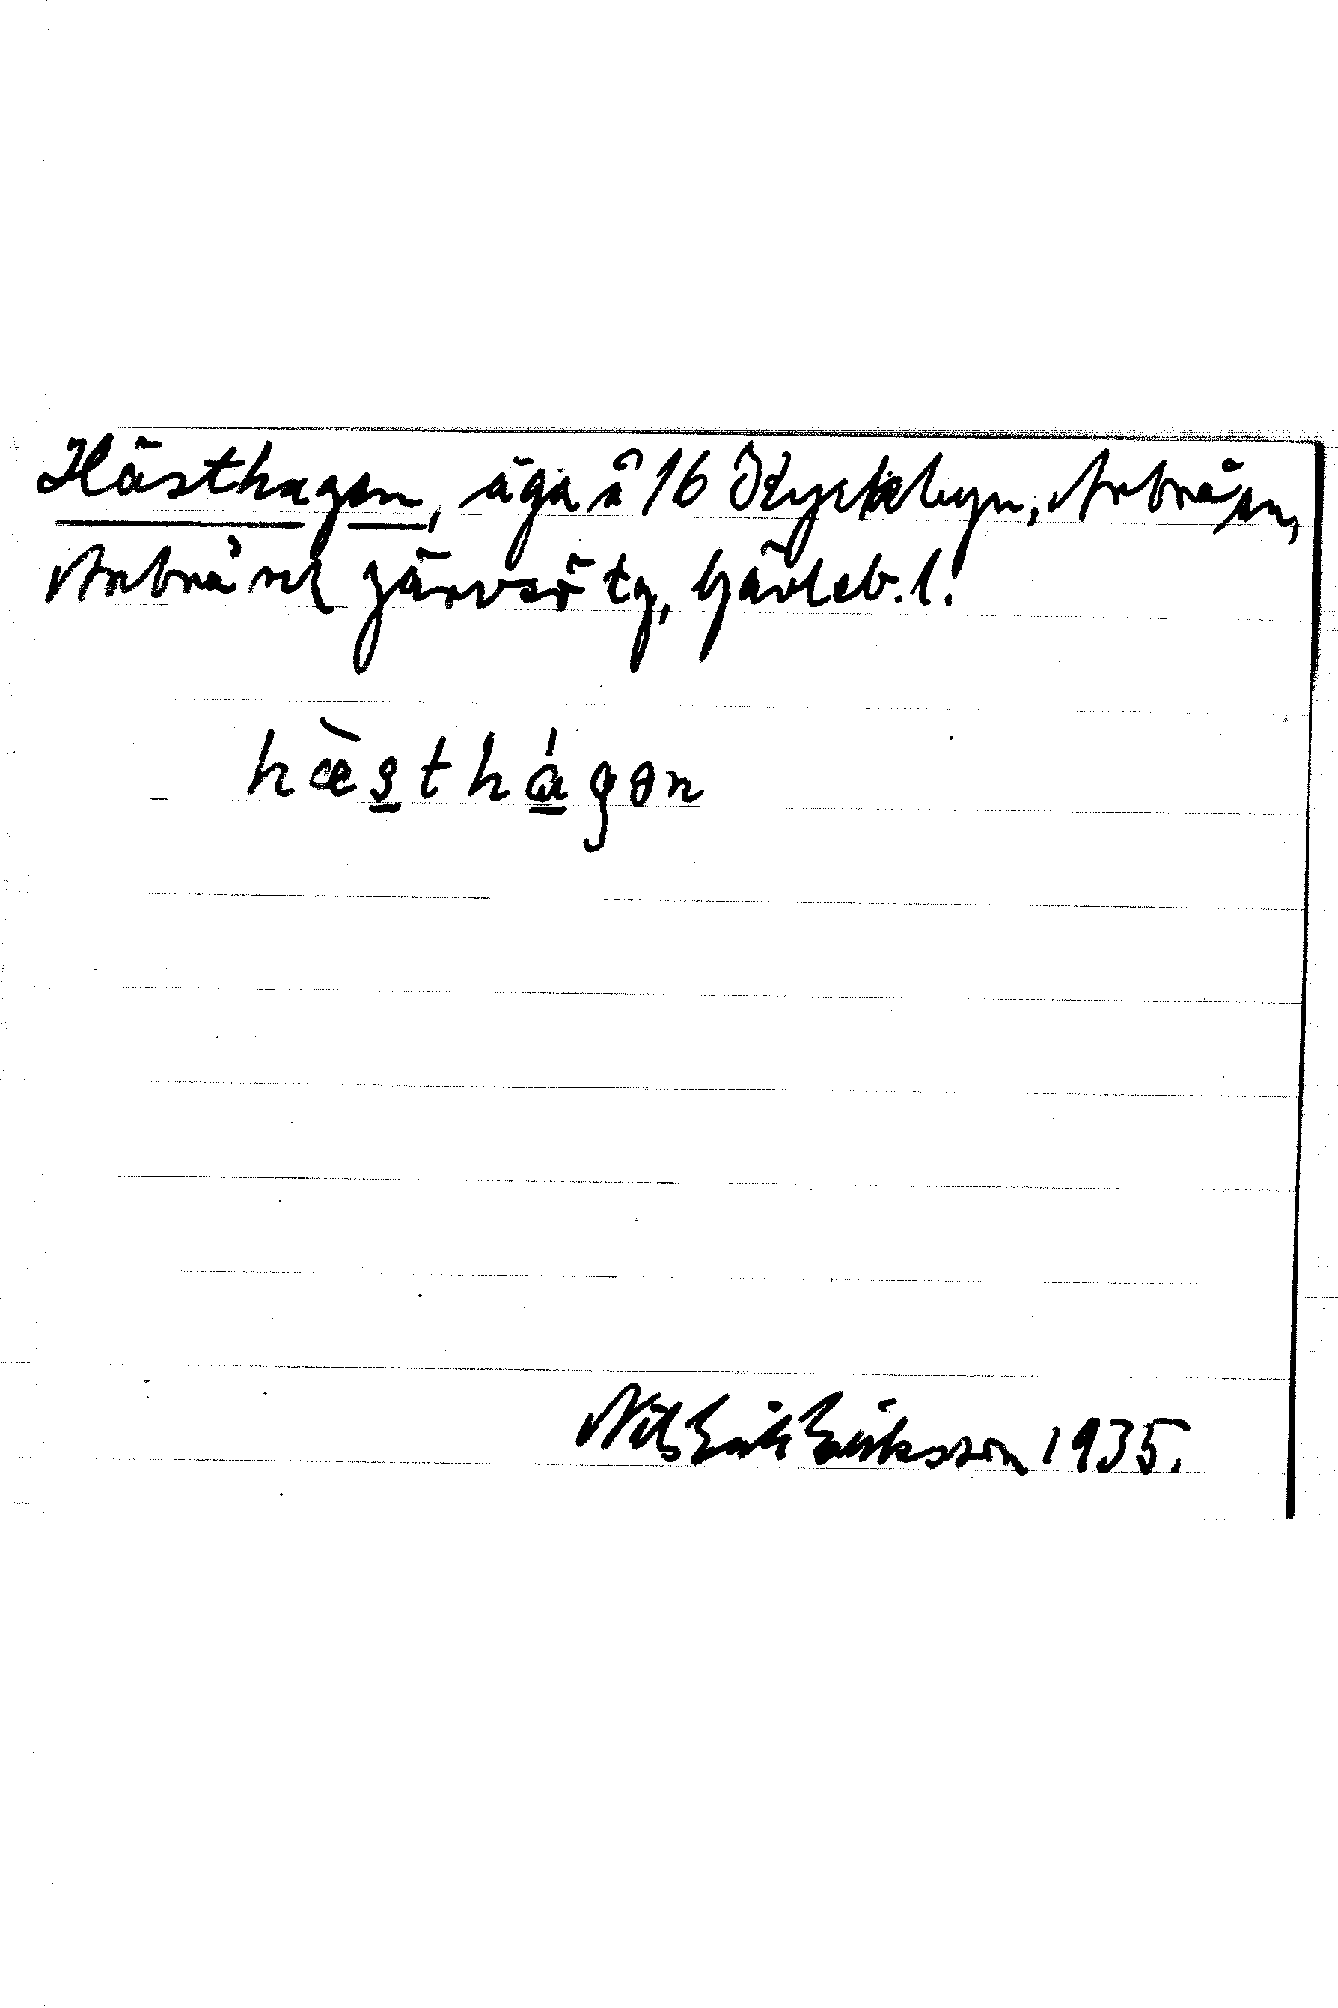 Hästhagen, äga å 16 Kyrkbyn, Arbrå sn,
Arbrå och Järvsö tg, Gävleb. l.
hæ̀sthágən
Nils Erik Eriksson 1935.